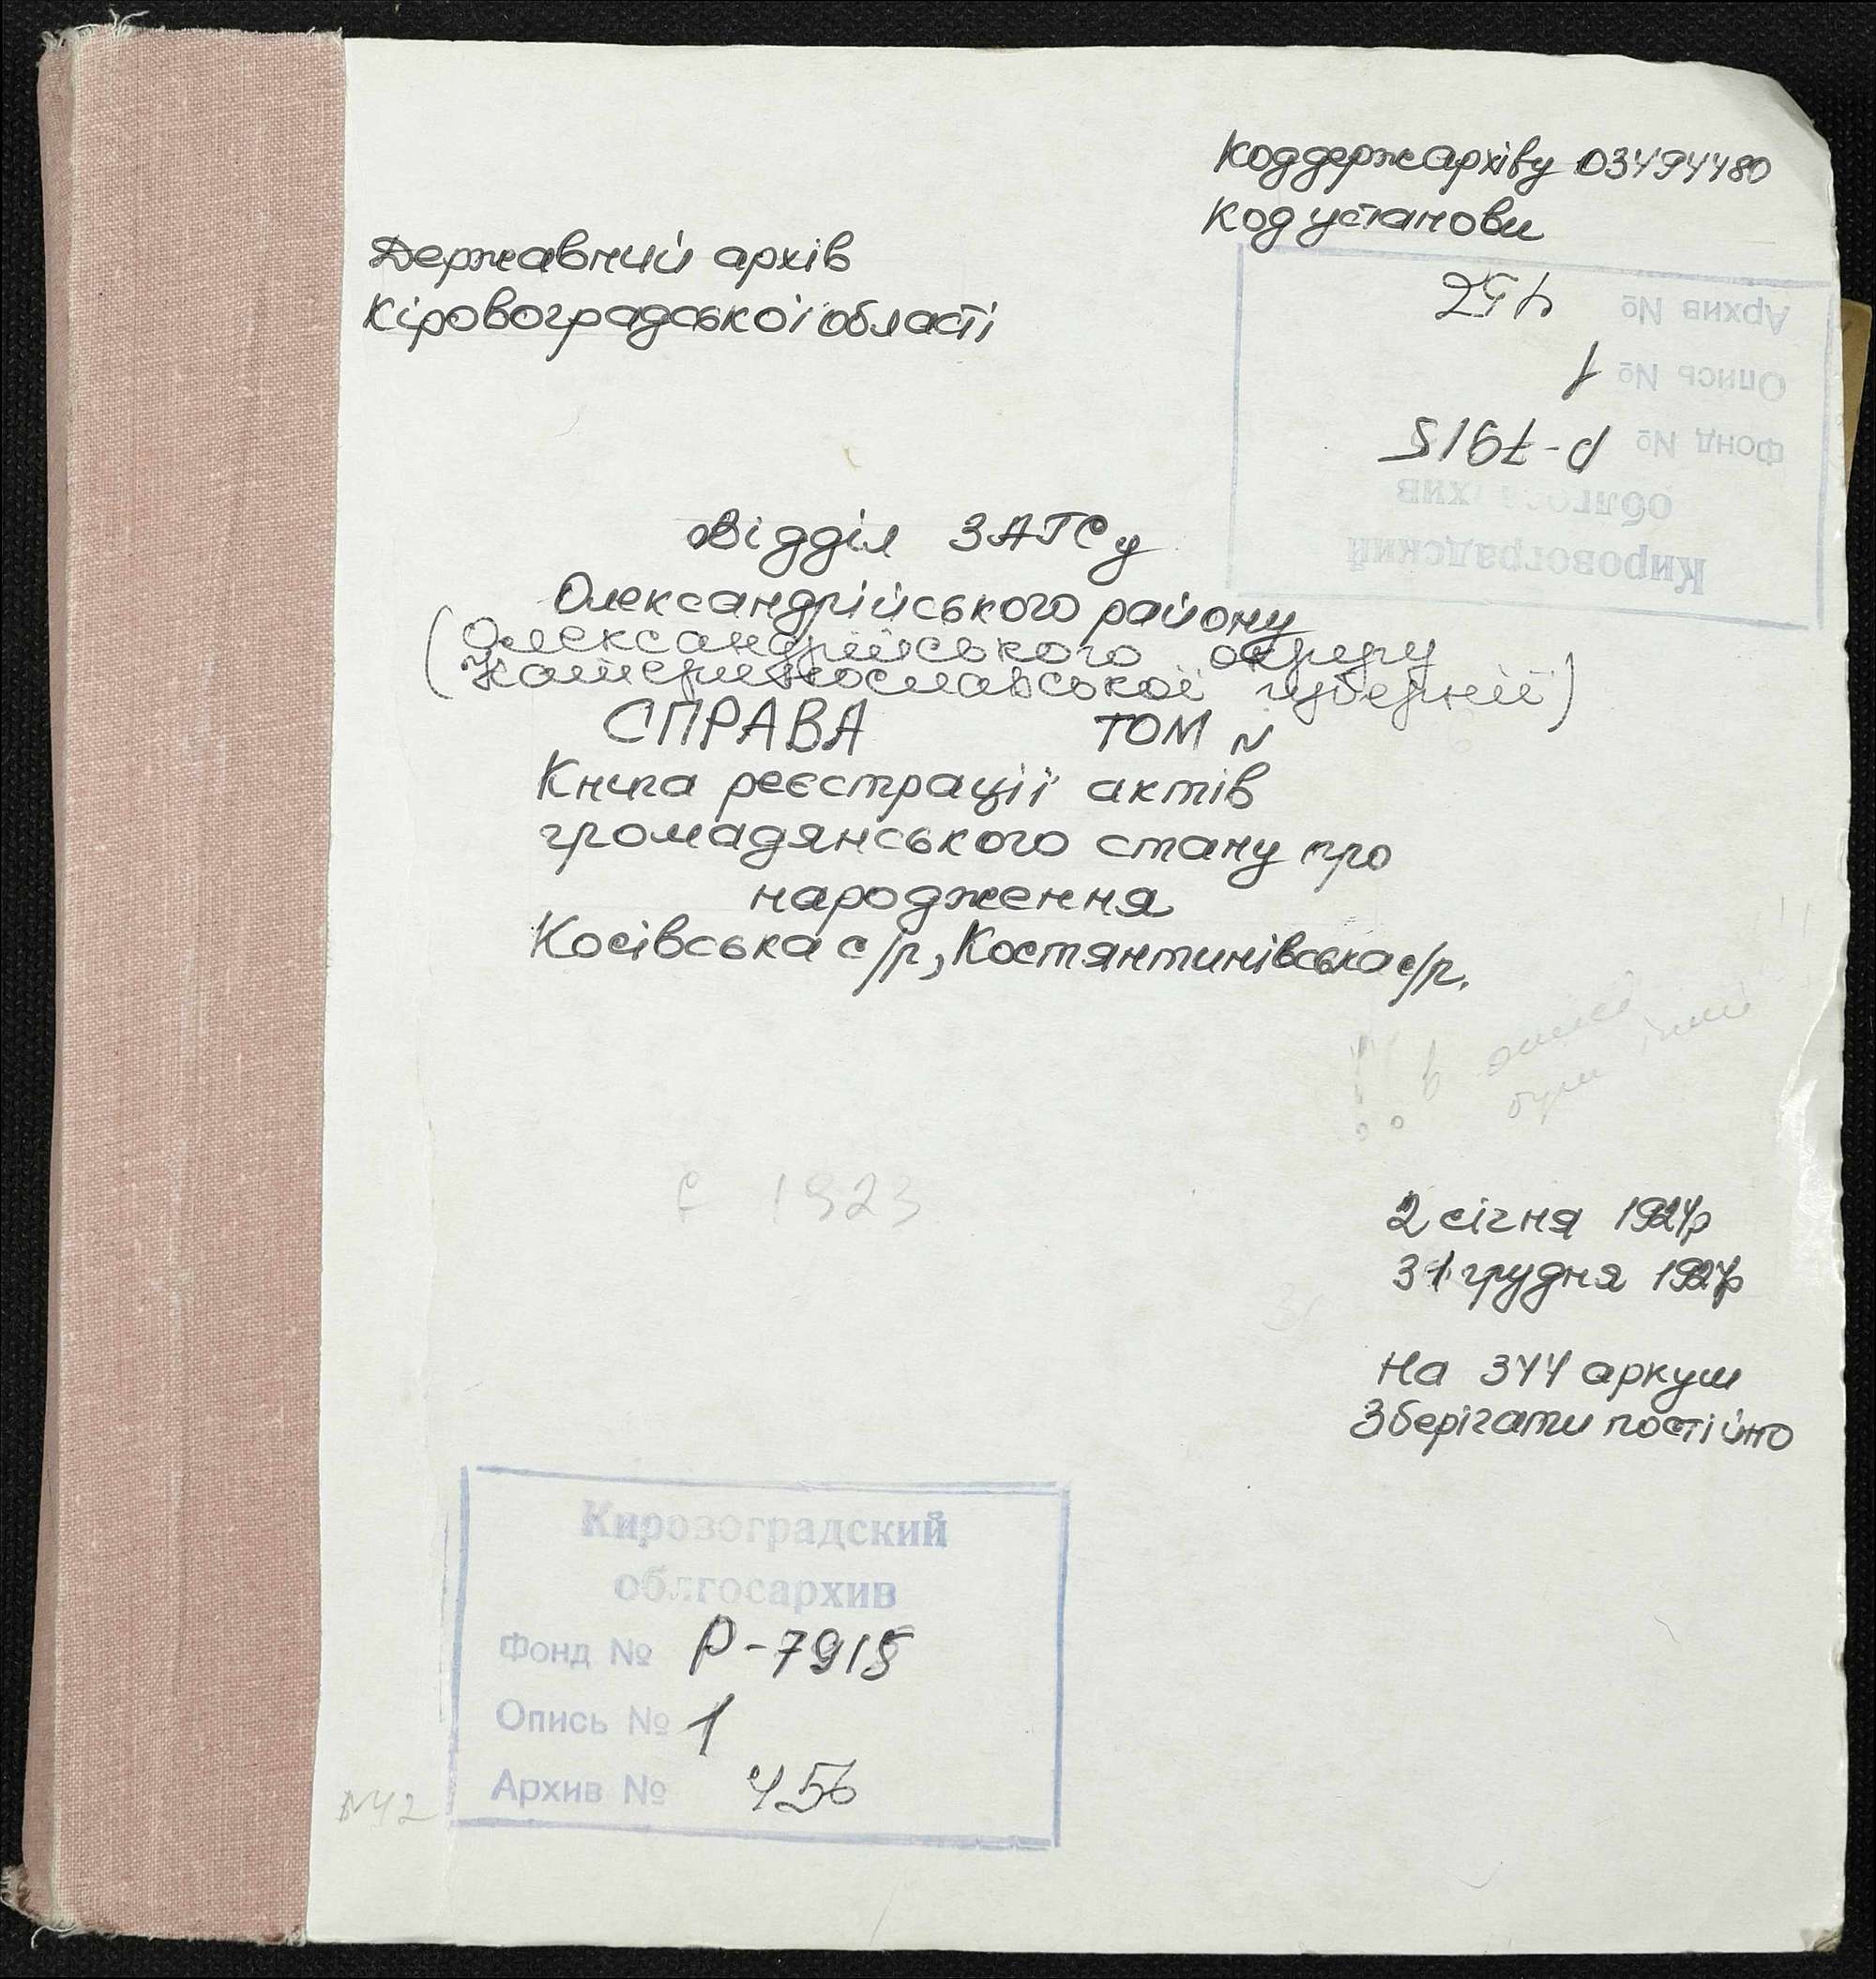 Коддержархіву 03494480
Код установи
Державний архів
Кіровоградської області
Архив №
Опись № 1
Фонд № Р-7915
облгосархив
Кировоградский
Відділ ЗАГСу
Олександрійського району
(Олександрійського округу
Катеринославської губернії)
СПРАВА ТОМ N
Книга реєстрації актів
громадянського стану про
народження
Косівська с/р, Костянтинівська с/р.
в описі
1923
2 січня 1924р
31 грудня 1924р
На 344 аркуш
Зберігати постійно
Кировоградский
облгосархив
Фонд № Р-7915
Опись № 1
Архив № 456
N42